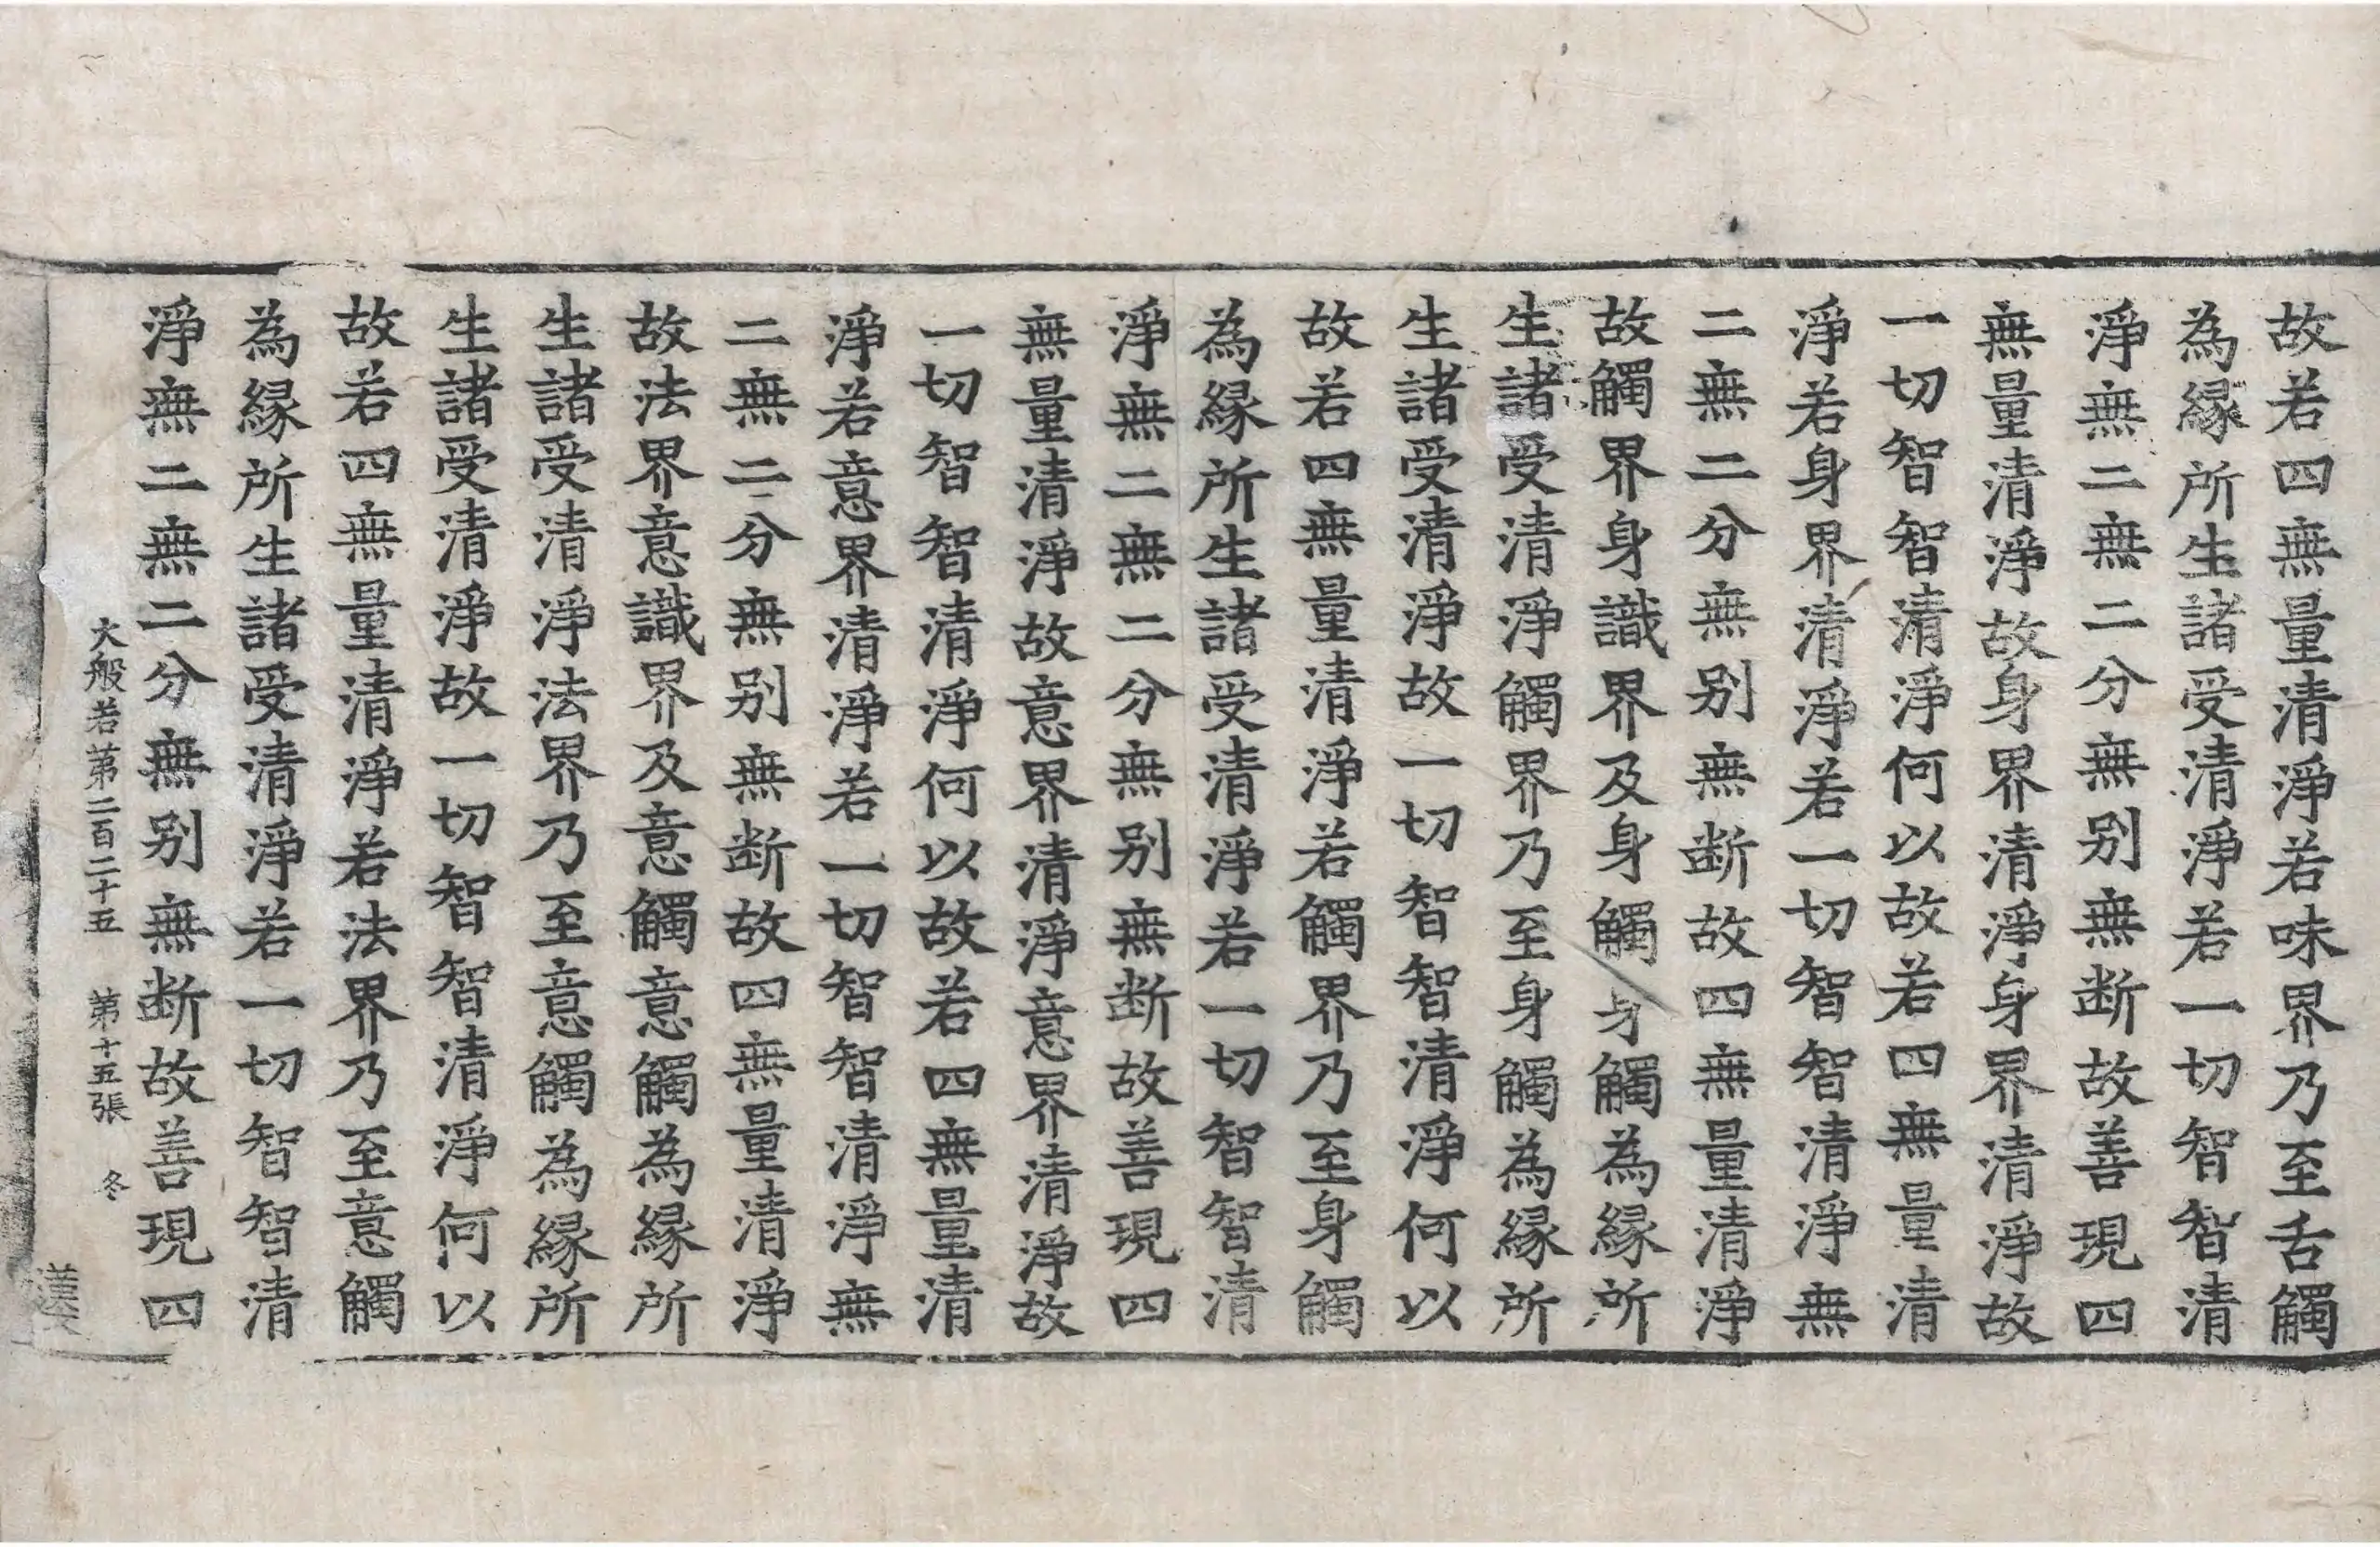 故若四無量清淨若味界乃至舌觸
為縁所生諸受清淨若一切智智清
淨無二無二分無别無断故善現四
無量清淨故身界清淨身界清淨故
一切智智清淨何以故若四無量清
淨若身界清淨若一切智智清淨無
二無二分無别無断故四無量清淨
故觸界身識界及身觸身觸為縁所
生諸受清淨觸界乃至身觸為縁所
生諸受清淨故一切智智清淨何以
故若四無量清淨若觸界乃至身觸
為縁所生諸受清淨若一切智智清
淨無二無二分無别無断故善現四
無量清淨故意界清淨意界清淨故
一切智智清淨何以故若四無量清
淨若意界清淨若一切智智清淨無
二無二分無别無断故四無量清淨
故法界意識界及意觸意觸為縁所
生諸受清淨法界乃至意觸為縁所
生諸受清淨故一切智智清淨何以
故若四無量清淨若法界乃至意觸
為縁所生諸受清淨若一切智智清
淨無二無二分無别無断故善現四
大般若第二百二十五 第十五張 冬